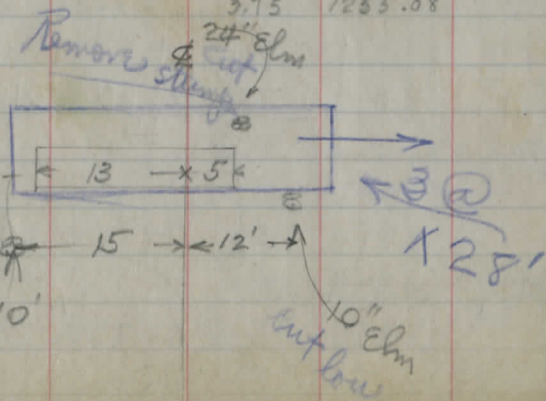 3.75 1255.08
Remove stump
℄ 24" Elm
Cut
13 × 5
15 12'
3 @
× 28'
10'
10" Elm
Cut low